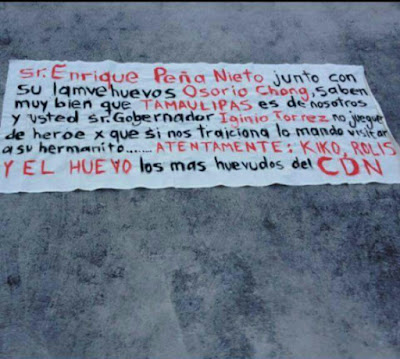 sr. Enrique Peña Nieto junto con
su lamvehuevos Osorio Chong, saben
muy bien que TAMAULIPAS es de nosotros
y usted sr. Gobernador Iginio Torrez no juegue
de heroe x que si nos traiciona lo mando visitar
a su hermanito....... ATENTAMENTE: KIKO, ROLIS
Y EL HUEVO los mas huevudos del CDN